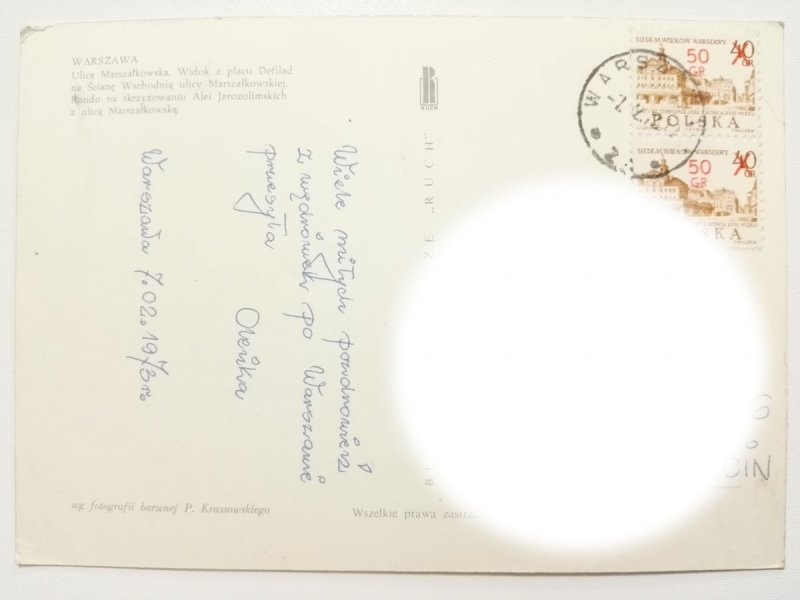 WARSZAWA
Ulica Marszałkowska. Widok z placu Defilad
na Ścianę Wschodnią ulicy Marszałkowskiej.
Rondo na skrzyżowaniu Alei Jerozolimskich
z ulicą Marszałkowską.
RUCH
SIEDEM WIEKÓW WARSZAWY 40
50 GR
GR
POLSKA
SIEDEM WIEKÓW WARSZAWY 40
50 GR
GR
POLSKA
Wiele miłych pozdrowień
z wędrówki po Warszawie
przesyła
Oleńka
Warszawa 7.02.1973r.
"RUCH"
wg fotografii barwnej P. Krassowskiego
Wszelkie prawa